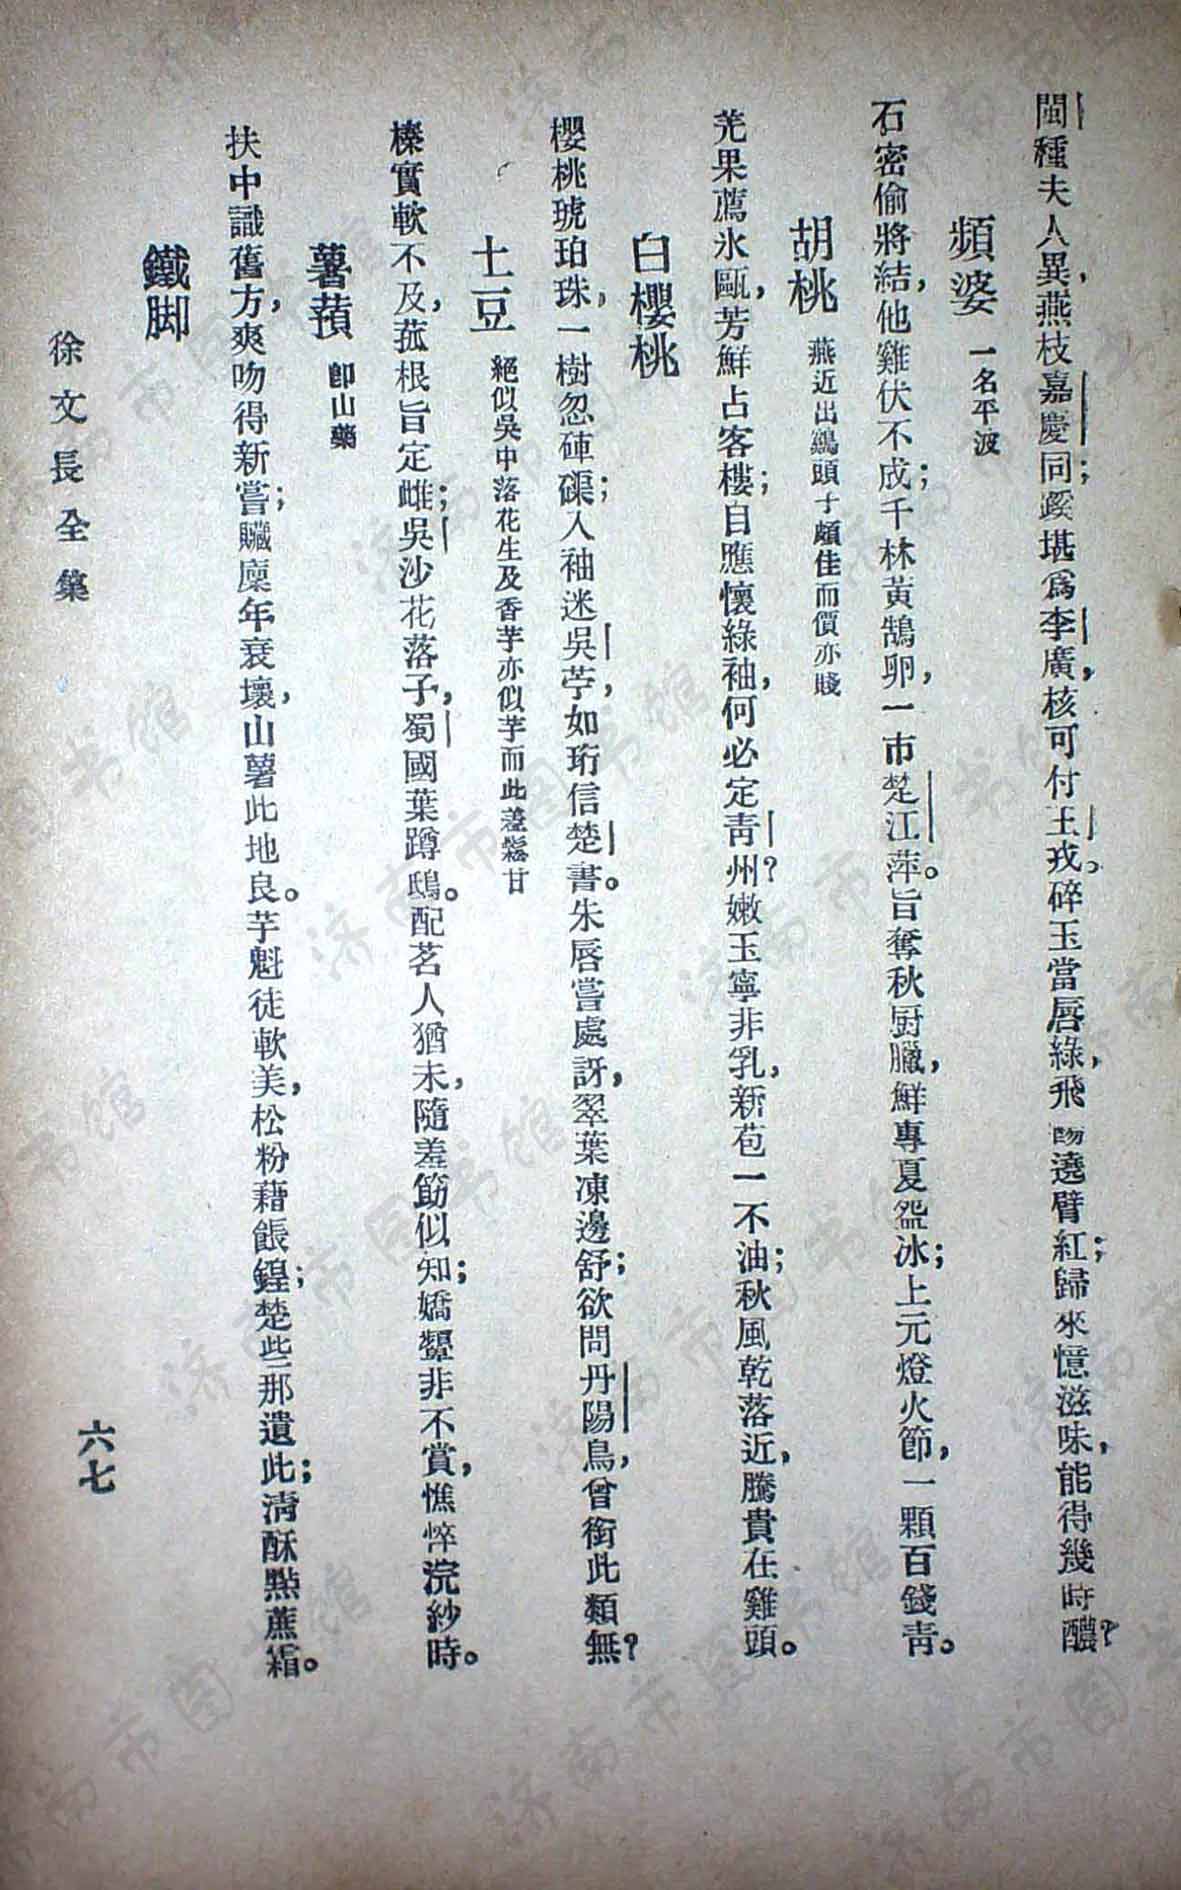 閩種夫人異，燕枝嘉慶同；蹊堪爲李廣，核可付王戎。碎玉當唇綠，飛 遶臂紅；歸來憶滋味，能得幾時醲？
頻婆 一名平波
石密偷將結，他雞伏不成；千林黃鵠卵，一市楚江萍。旨奪秋厨臘，鮮專夏盌冰；上元燈火節，一顆百錢青。
胡桃 燕近出鷄頭子頗佳而價亦賤
羌果薦氷甌，芳鮮占客樓；自應懷綠袖，何必定青州？嫩玉寧非乳，新苞一不油；秋風乾落近，騰貴在雞頭。
白櫻桃
櫻桃琥珀珠，一樹忽硨磲；入袖迷吳苧，如珩信楚書。朱唇嘗處訝，翠葉凍邊舒；欲問丹陽鳥，曾銜此類無？
土豆 絕似吳中落花生及香芋亦似芋而此差鬆甘
榛實軟不及，菰根旨定雌；吳沙花落子，蜀國葉蹲鴟。配茗人猶未，隨羞筯似知；嬌顰非不賞，憔悴浣紗時。
薯蕷 卽山藥
扶中識舊方，爽吻得新嘗；贓廩年衰壞，山薯此地良。芋魁徒軟美，松粉藉餦餭；楚些那遺此；清酥點蔗霜。
鐵脚
徐文長全集
六七